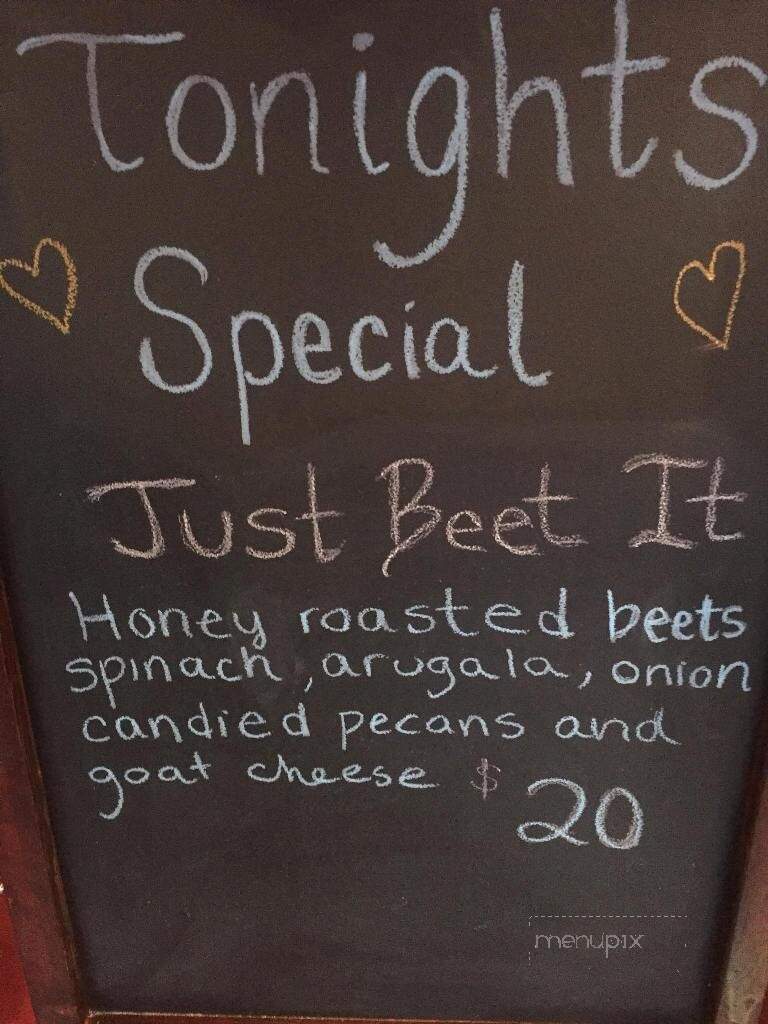 Tonights
Special
Just Beet It
Honey roasted beets
spinach, arugala, onion
candied pecans and
goat cheese $20
menupix